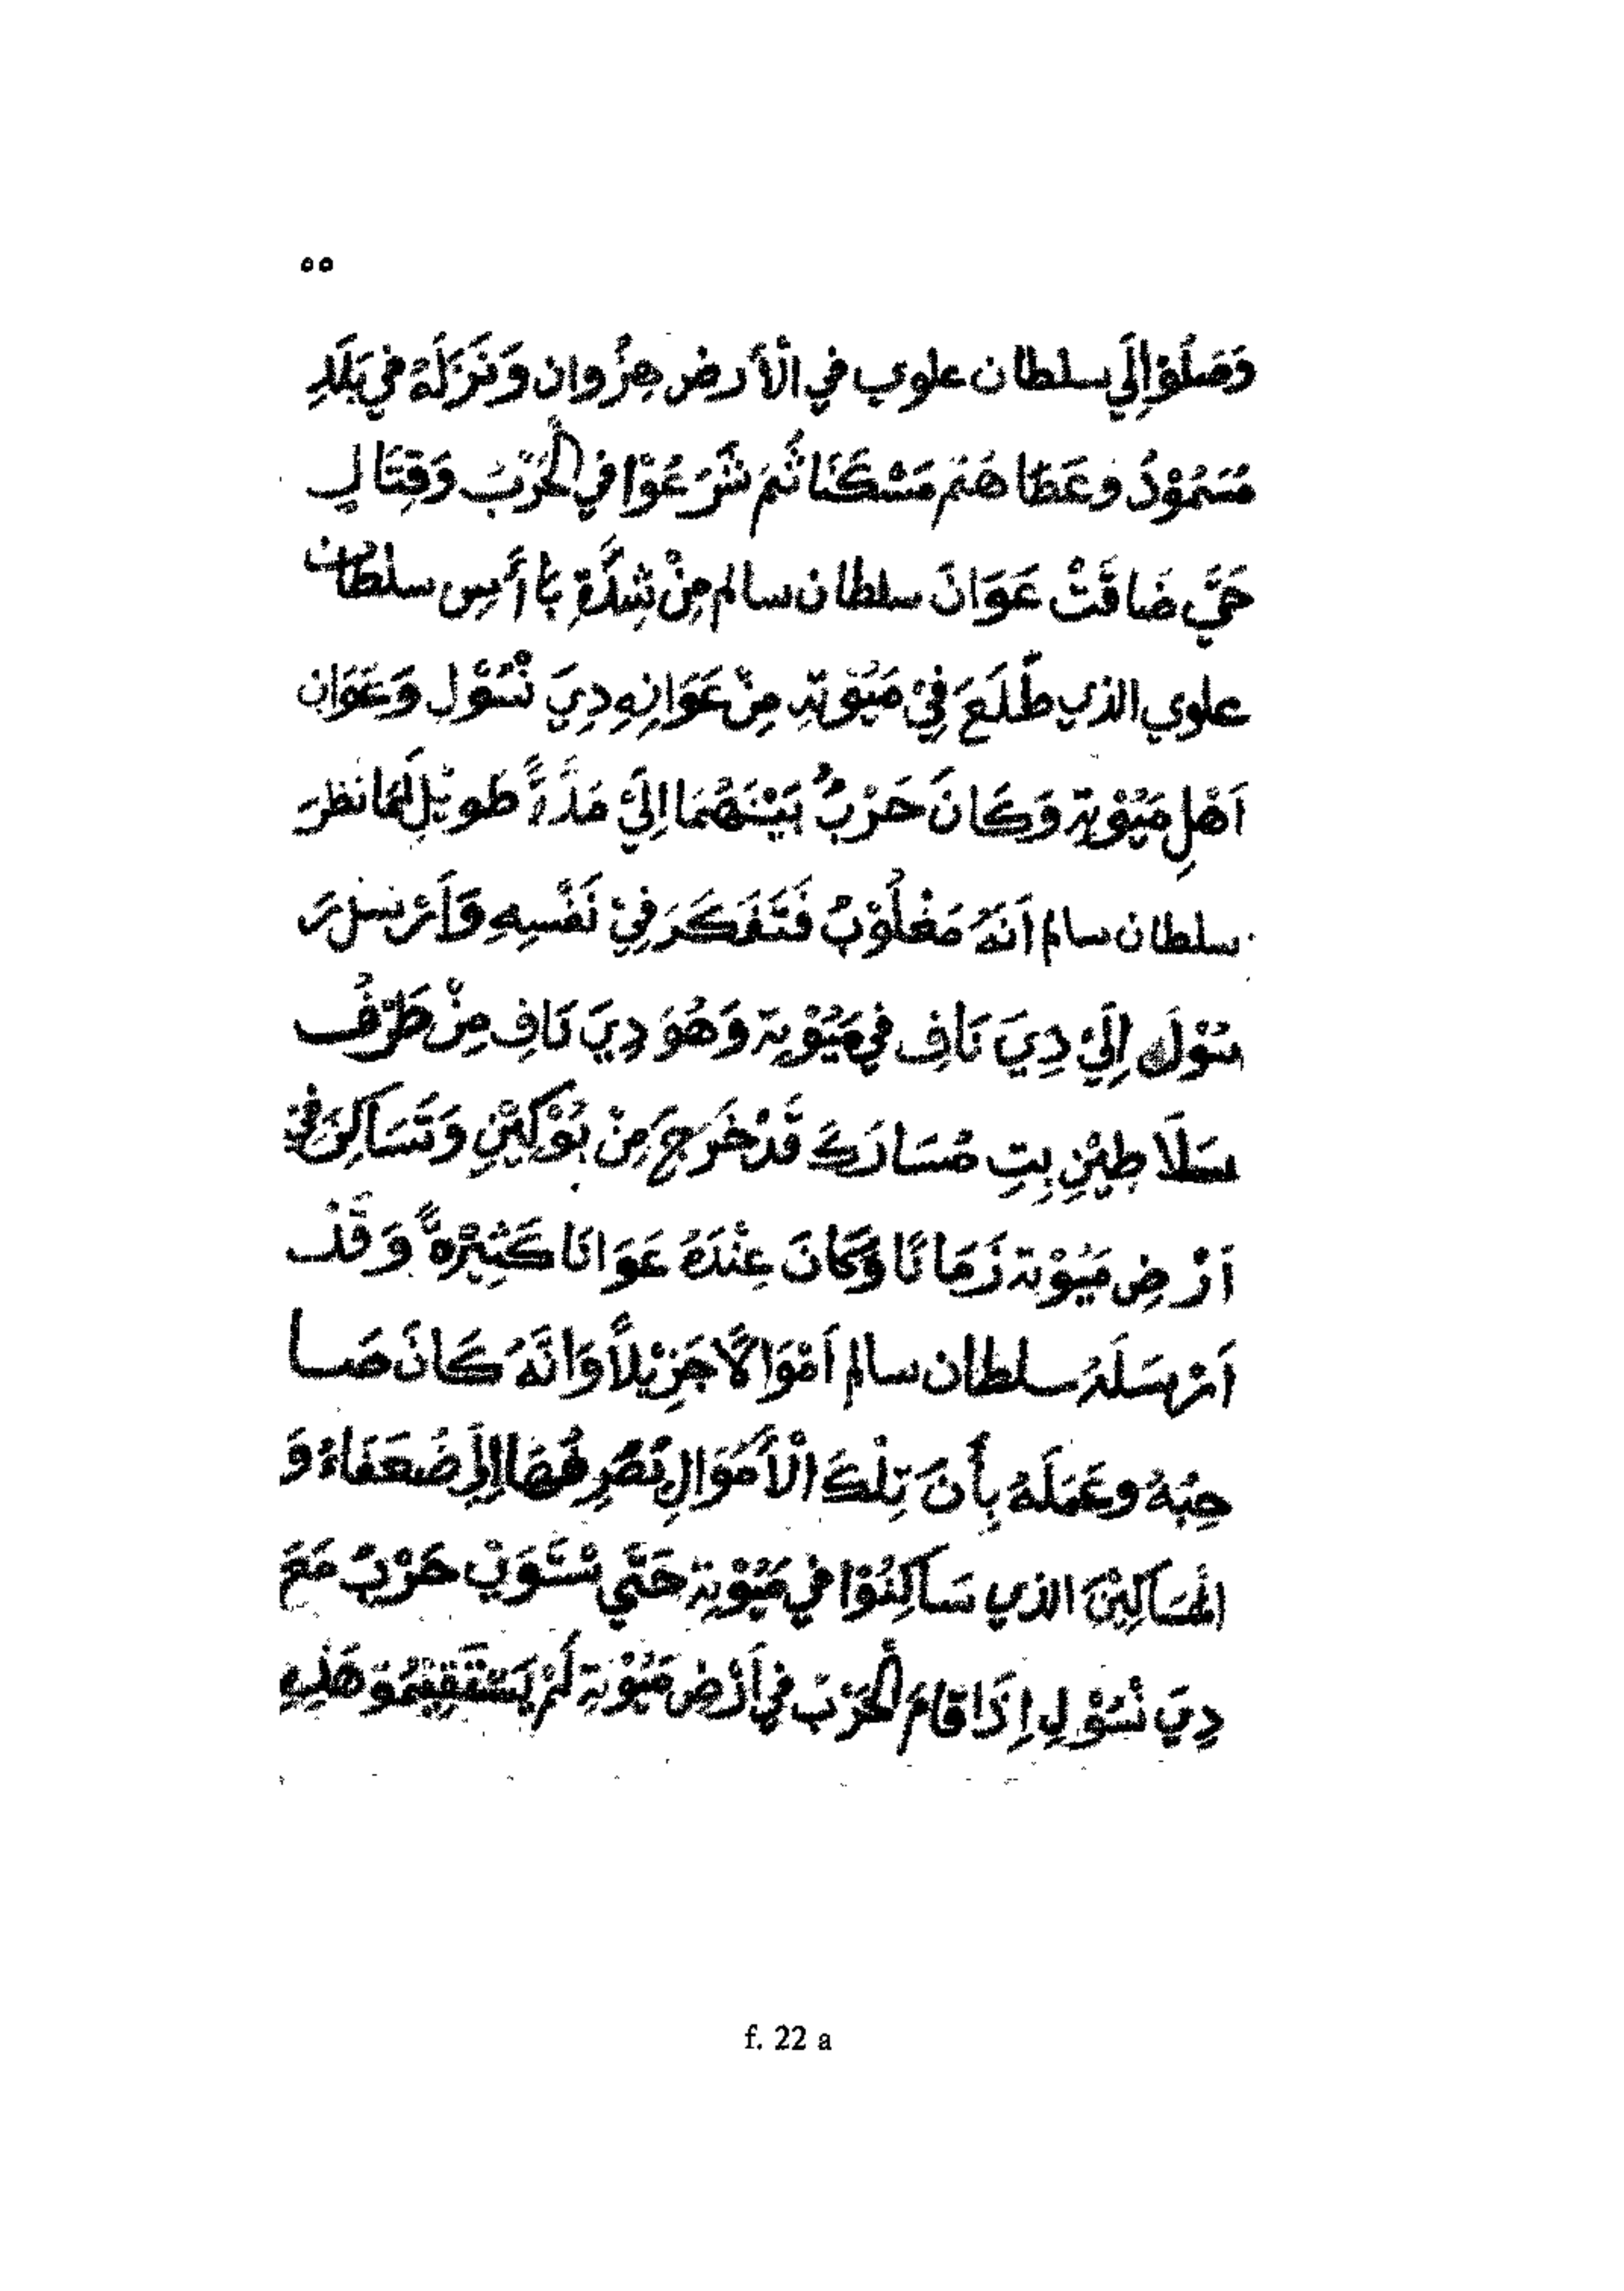 ٥٥
وَصَلُوْا إِلَي سلطان علوي في الْأَرض هِنْزُوان وَنَزَلَهُ في بَلَدِ
مُسَمُوْدُ وعَطَاهُمْ مَسْكَنَا ثُمَ شَرَعُوْا في الْحَرْبَ وَقِتَالِ
حَتَّي ضَاقَتْ عَوَانَ سلطان سالم مِنْ شِدَّةِ بَأْسِ سلطان
علوي الذي طَلَعَ فِيْ مَيُوْتِهِ مِنْ عَوَانِهِ دِيَ نْسُوْلِ وَعَوَانِ
اَهْلِ مَيُوْتة وَكَانَ حَرْبٌ بَيْنَهُمَا اِلَيَ مَدَّةً طَوِيْلِ لَمَا نظرَ
سلطان سالم اَنَهُ مَغْلُوْبٌ فَتَفَكَرَ فِيْ نَفْسِهِ وَاَرْسَلَ رَ
سُوْلَه اِلَيَ دِيَ نَافِ في مَيُوْتة وَهُوَ دِيَ نَافِ مِنْ طَرْفُ
سَلَاطِيْنِ بِتِ مُسَارَكَ قَدْ خَرَجَ مِنْ بُوْكِيْنِ وَتَسَاكِنَ في
اَرْضِ مَيُوْتة زَمَانًا وَكَانَ عِنْدَهُ عَوَانَا كَثِيْرَةً وَقَدْ
اَرْسَلَهُ سلطان سالم اَمْوَالًا جَزِيْلاً وَاَنَّهُ كَانَ صَا
حِبُهُ وعَمَلَهُ بِأَنَ تِلْكَ الْأَمْوَالِ تُصْرِفُهَا اِلَي ضُعَفَاءُ وَ
الْمَسَاكِيْنَ الذي سَاكِنُوْا في مَيُوْتة حَتَّي نْسَوِيْ حَرْبٌ مَعَ
دِيَ نْسُوْلِ اِذَا قامَ الْحَرْبَ في اَرْض مَيُوْتة لَمْ يَسْتَقِيْمُوَ هَذِهِ
f. 22 a